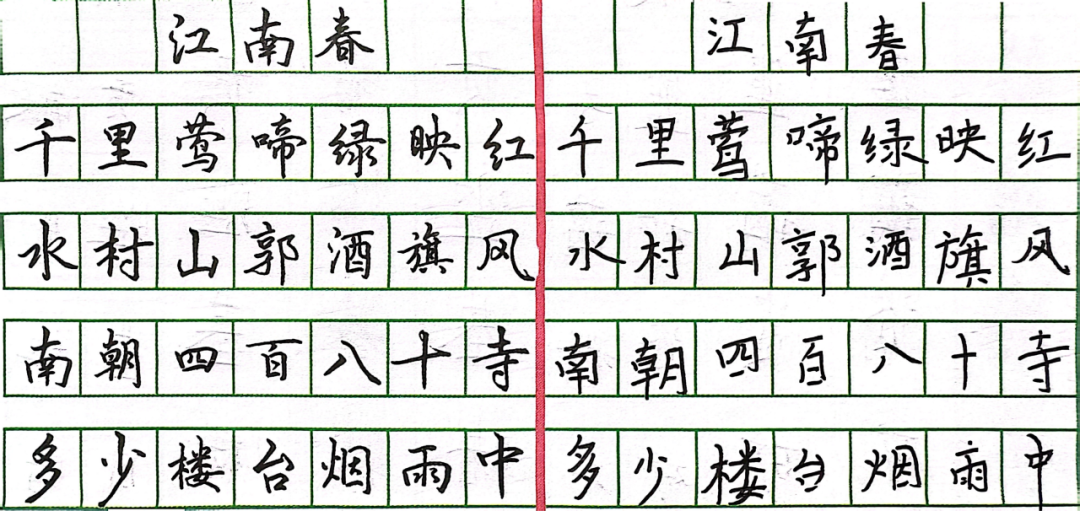 江南春
千里莺啼绿映红
水村山郭酒旗风
南朝四百八十寺
多少楼台烟雨中
江南春
千里莺啼绿映红
水村山郭酒旗风
南朝四百八十寺
多少楼台烟雨中